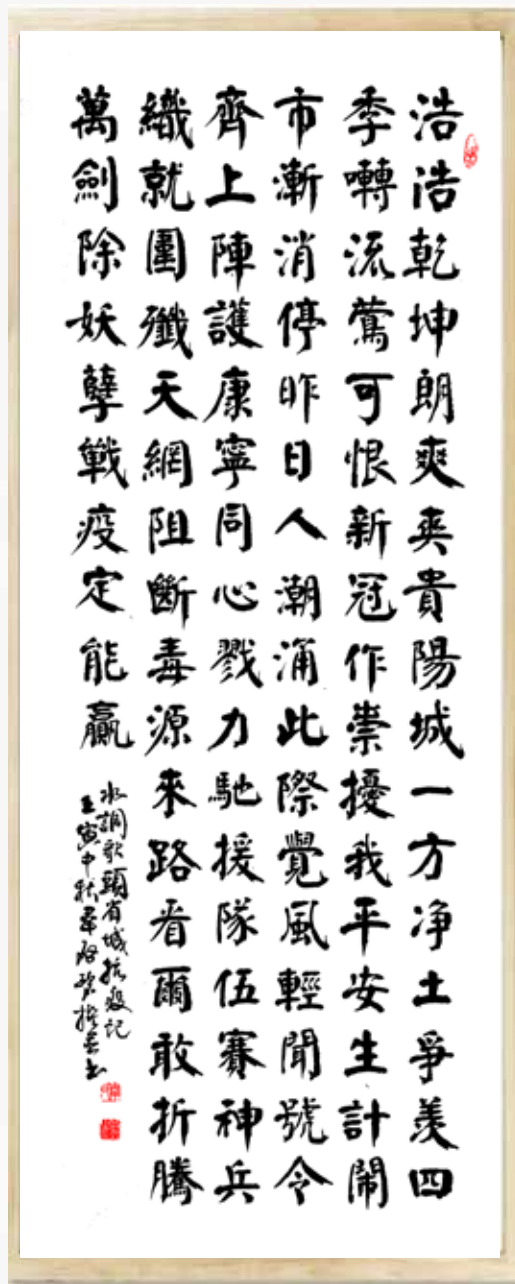 浩浩乾坤朗爽爽貴陽城一方净土爭羡四
季囀流鶯可恨新冠作祟擾我平安生計鬧
市漸消停昨日人潮涌此際覺風輕聞號令
齊上陣護康寧同心戮力馳援隊伍賽神兵
織就圍殲天網阻斷毒源來路看爾敢折騰
萬劍除妖孽戰疫定能贏
水調歌頭省城抗疫記
壬寅中秋